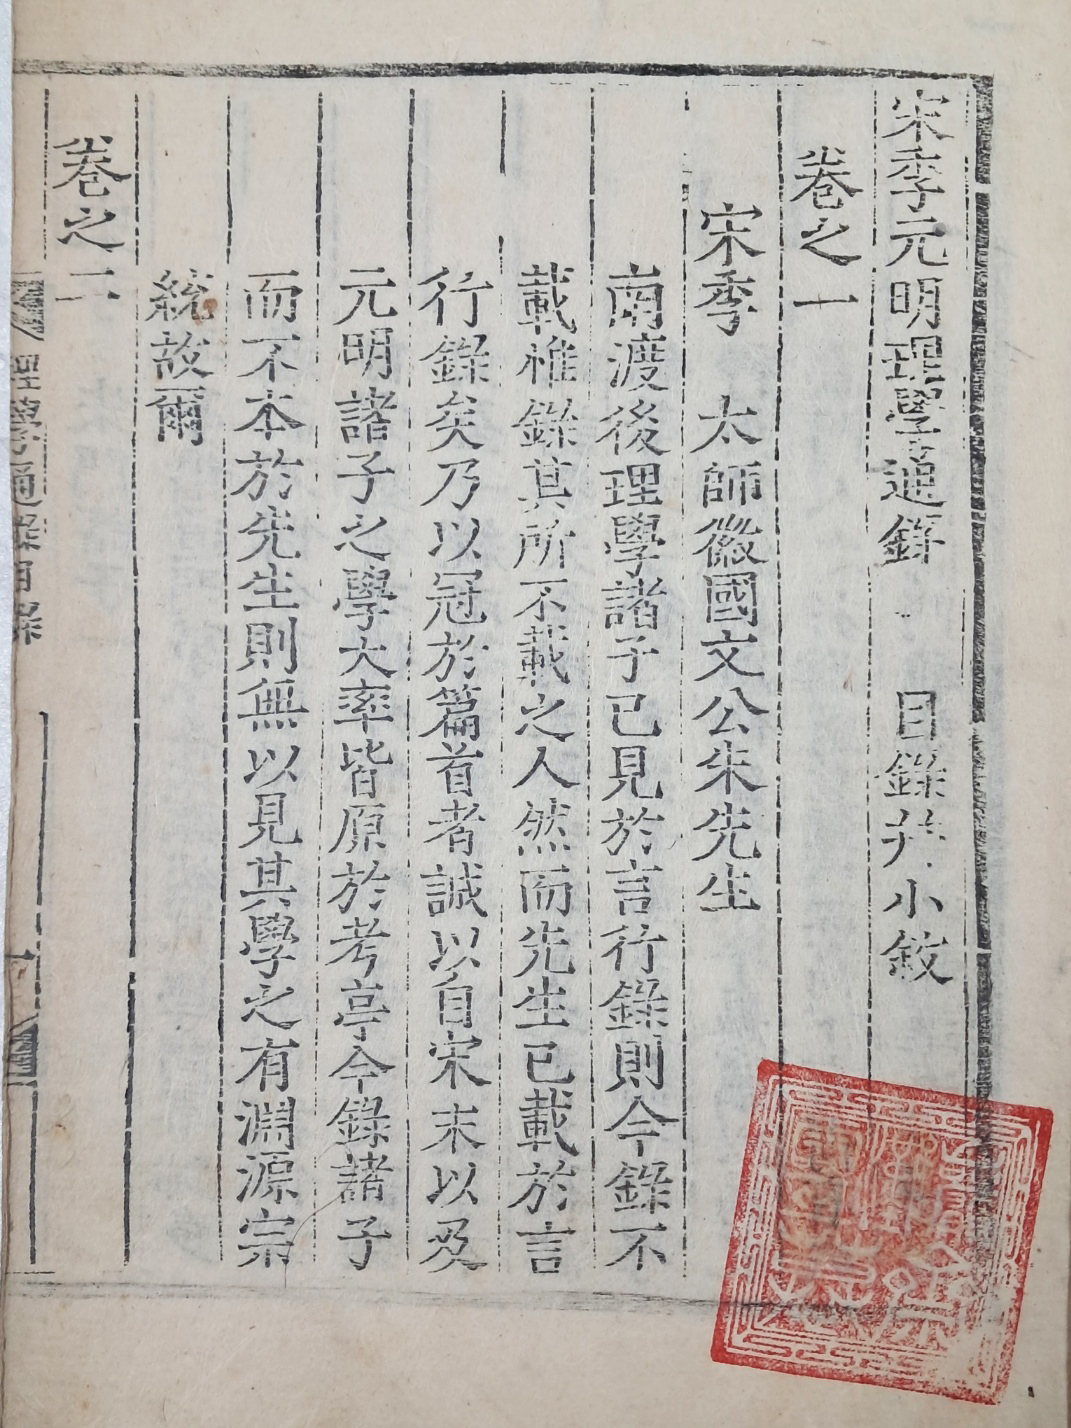 宋季元明理學通錄 目錄幷小敘
卷之一
宋季 太師徽國文公朱先生
南渡後理學諸子已見於言行錄則今錄不
載惟錄其所不載之人然而先生已載於言
行錄矣乃以冠於篇首者誠以自宋末以及
元明諸子之學大率皆原於考亭今錄諸子
而不本於先生則無以見其學之有淵源宗
統故爾
卷之二
理學通錄目錄